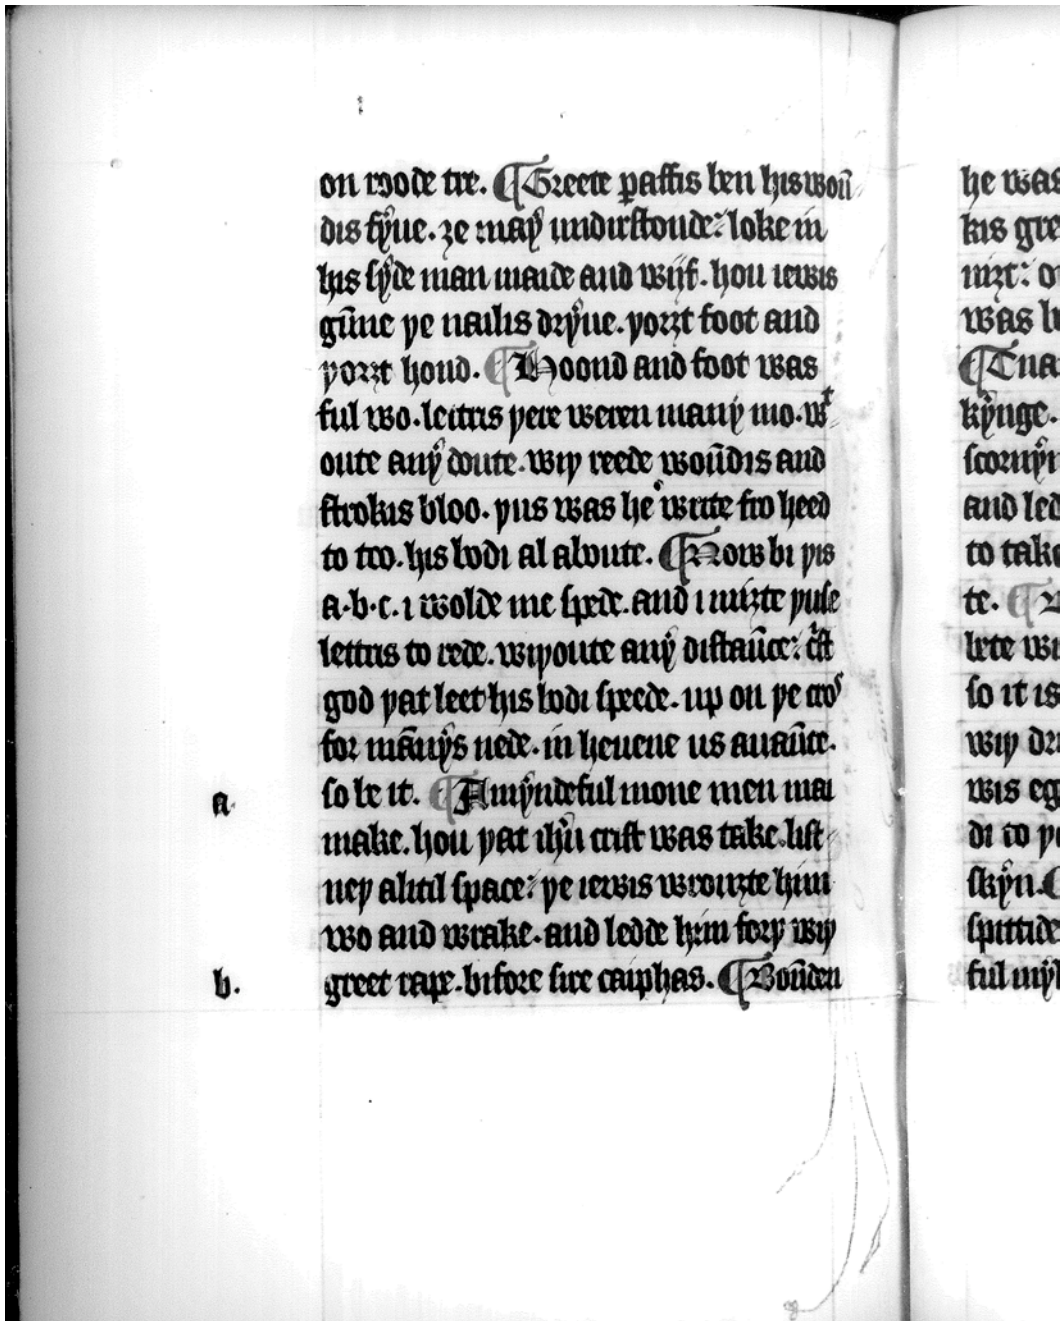 on roode tre. ¶ Greete ꝑaffis ben his woū
dis fyue. ȝe may undirstonde: loke in
his syde man maide and wijf. hou iewis
gūne þe nailis dryue. þorȝt foot and
þorȝt hond. ¶ Hoond and foot was
ful wo. lettris þere weren many mo. wᵗ
oute any doute. wiþ reede woūdis and
strokis bloo. þus was he write fro heed
to too. his bodi al aboute. ¶ Now bi þis
a.b.c. i wolde me spede. and i miȝte þuse
lettris to rede. wiþoute any distaūce: cⁱst
god þat leet his bodi sprede. up on þe croˢ
for mānys nede. in heuene us auaūce.
a. so be it. ¶ A myndeful mone men mai
make. hou þat ihū crist was take. list
neþ a litil space: þe iewis wrouȝte him
wo and wrake. and ledde him forþ wiþ
b. greet rape. bifore sire caiphas. ¶ Boūden
he was
kis gre
niȝt: o
was b
¶ Tua
kynge.
scornyn
and led
to take
te. ¶
lete wi
so it is
wiþ dr
wis eg
di to þ
skyn. ¶
spittide
ful myl